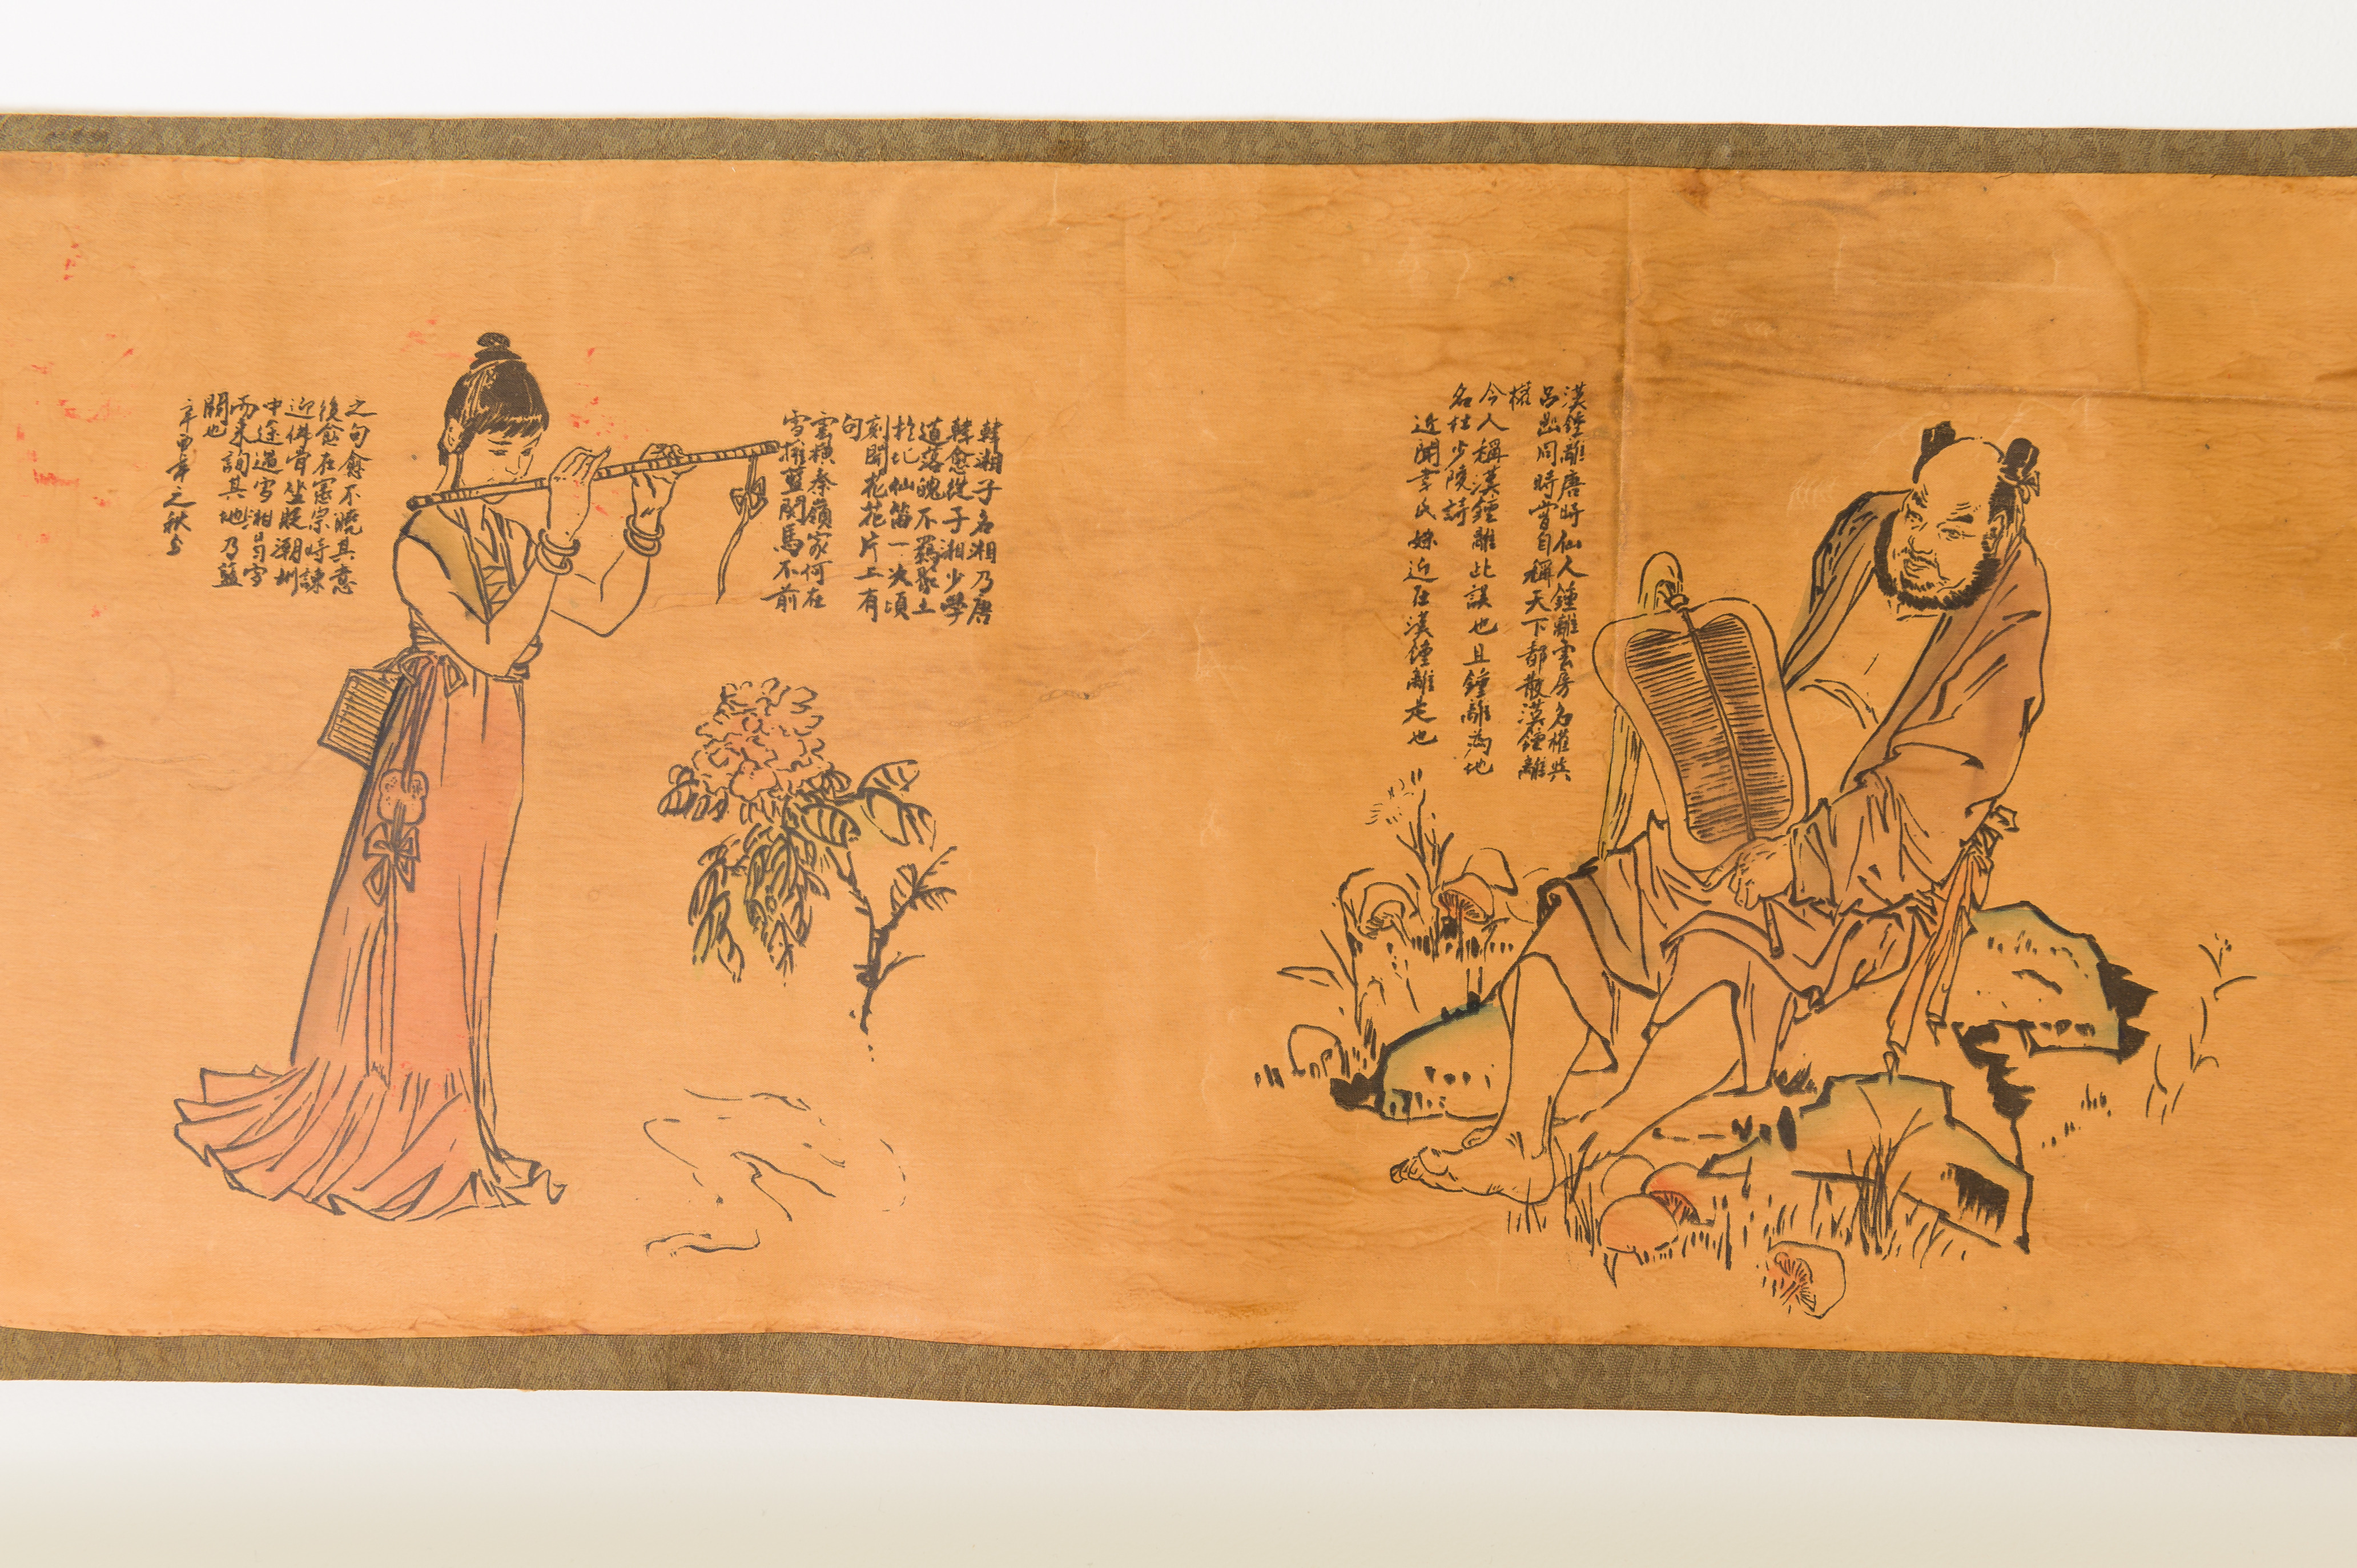 漢鍾離唐時仙人鍾離雲房名權與
呂嵒同時嘗自稱天下都散漢鍾離
權
今人稱漢鍾離此誤也且鍾離為地
名杜少陵詩
近聞韋氏妹近在漢鍾離是也
韓湘子名湘乃唐
韓愈從子湘少學
道落魄不羈
於仙笛一次頃
刻開花花片上有
句
雲橫秦嶺家何在
雪擁藍関馬不前
之句愈不曉其意
後愈在憲宗時諫
迎佛骨坐貶潮州
中途遇雪湘冒雪
而来詢其地乃藍
關也
辛酉年之秋